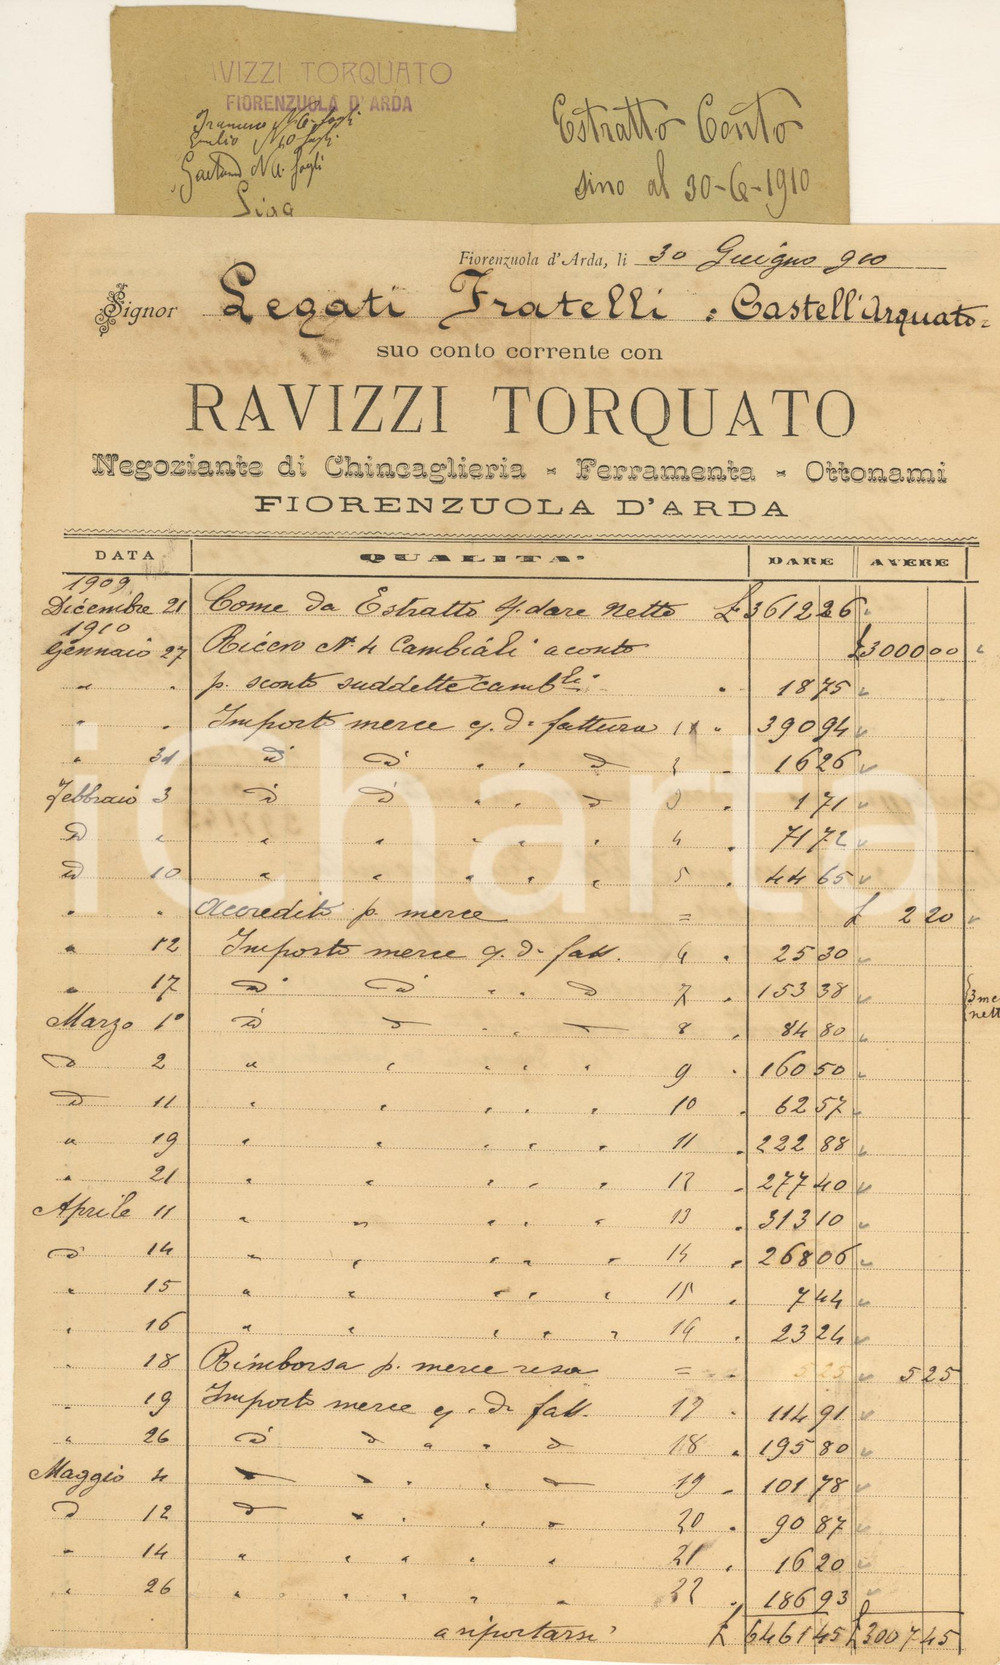 RAVIZZI TORQUATO
FIORENZUOLA D'ARDA
Emilio
Gaetano fogli
Estratto Conto
sino al 30-6-1910
Fiorenzuola d'Arda, li 30 Giugno 910
Signor Legati Fratelli : Castell'Arquato
suo conto corrente con
RAVIZZI TORQUATO
Negoziante di Chincaglieria - Ferramenta - Ottonami
FIORENZUOLA D'ARDA
DATA QUALITA' DARE AVERE
1909
Dicembre 21 Come da Estratto q. dare netto £ 3612 26
1910
Gennaio 27 Ricevo N. 4 Cambiali aconto £ 3000 00
" " p. sconto suddette camb.li " 18 75
" " Importo merce q. d. fattura 1 " 390 94
" 31 d d " " d 2 " 16 26
Febbraio 3 d d " " d 3 " 1 71
d " " " " " " 4 " 71 72
d 10 " " " " " 5 " 44 65
" " Accredito p. merce = £ 2 20
" 12 Importo merce q. d. fatt. 6 " 25 30
" 17 d d " " d 7 " 153 38
3 me
nett
Marzo 1° d d " " d 8 " 84 80
d 2 " " " " " 9 " 160 50
d 11 " " " " " 10 " 62 57
" 19 " " " " " 11 " 222 88
" 21 " " " " " 12 " 277 40
Aprile 11 " " " " " 13 " 313 10
d 14 " " " " " 14 " 268 06
" 15 " " " " " 15 " 7 44
" 16 " " " " " 16 " 23 24
" 18 Rimborsa p. merce resa = 5 25 5 25
" 19 Importo merce q. d. fatt. 17 " 114 91
" 26 d d " " d 18 " 195 80
Maggio 4 d d " " d 19 " 101 78
d 12 d " " " " 20 " 90 87
" 14 " " " " " 21 " 16 20
" 26 " " " " " 22 " 186 93
a riportarsi £ 6461 45 £ 3007 45
iCharta